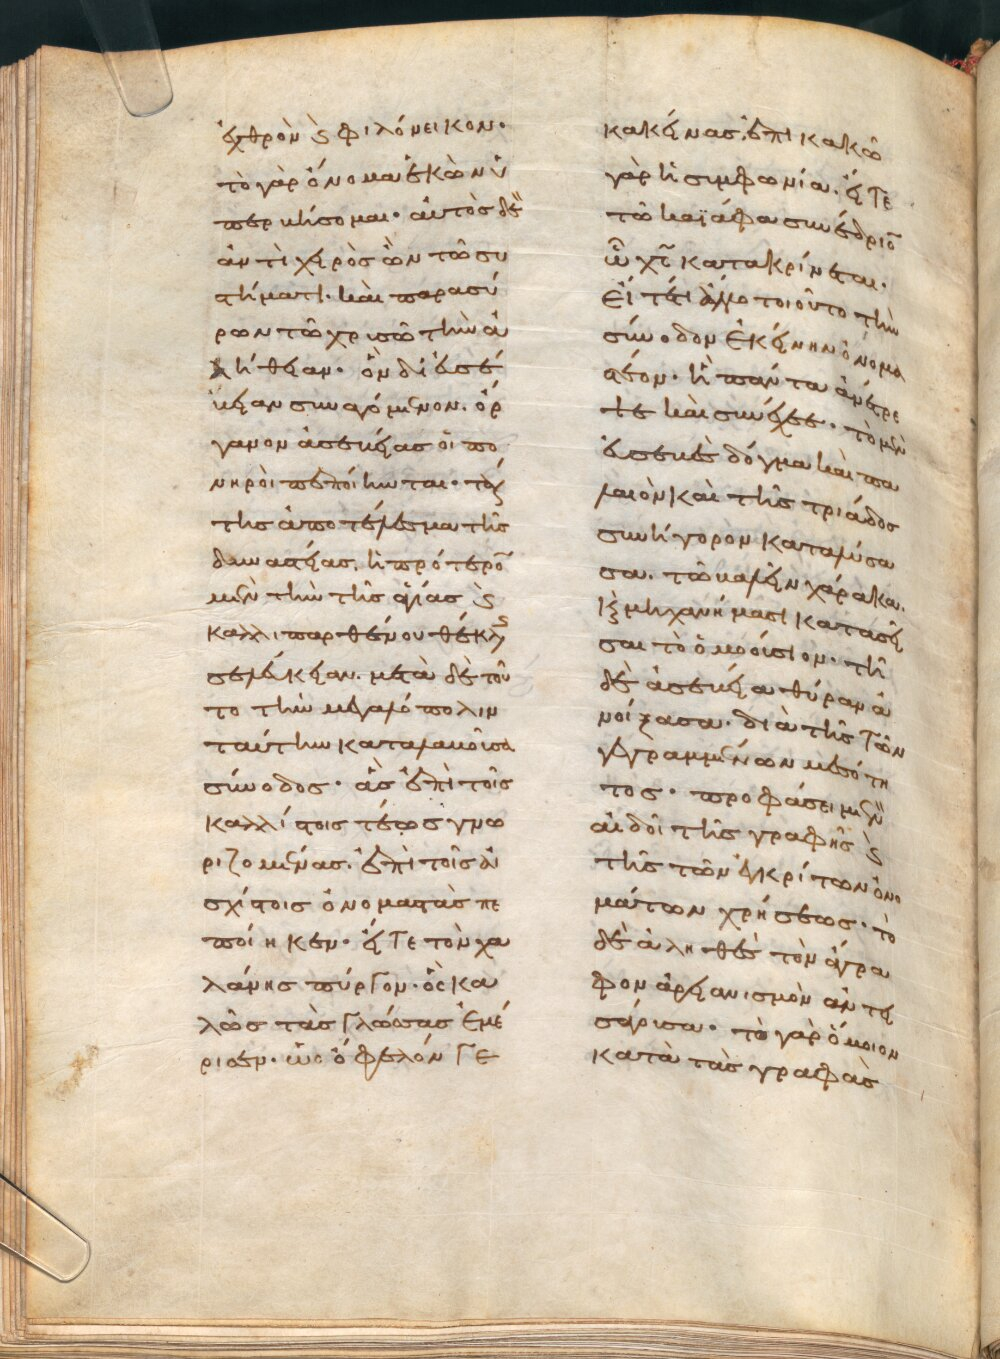 ἐχθρὸν ϗ φιλόνεικον·
τὸ γὰρ ὄνομα ἑκὼν ὑ
περβήσομαι· αὐτὸς δὲ
ἀντὶ χειρὸς ὢν τῶ συ
στήματι· καὶ παρασύ
ρων τῶ χρυσῶ τὴν ἀ
λήθειαν· ὃν δι' εὐσέ
βειαν συναγόμενον. ὄρ
γανον ἀσεβείας οἱ πο
νηροὶ πεποίηνται· τοῦ
της ἀποτέλεσμα τῆς
δυναστείας. ἡ πρότερον
μὲν τὴν τῆς ἁγίας ϗ
καλλιπαρθένου θέκλας
σελεύκειαν. μετὰ δὲ τοῦ
το τὴν μεγαλόπολιν
ταύτην καταλαβοῦσα
σύνοδος· ἃς ἐπὶ τοῖς
καλλίστοις τέως γνω
ριζομένας. ἐπὶ τοῖς αἰ
σχίστοις ὀνομαστὰς πε
ποίηκεν· εἴτε τὸν χα
λάνης πύργον· ὃς κα
λῶς τὰς γλώσσας ἐμέ
ρισεν· ὡς ὄφελόν γε
κακείνας, ἐπι κακῶ
γὰρ ἡ συμφωνία. εἴτε
τὸ καϊάφα συνέδριον
ὧ χς κατακρίνεται·
εἴτέ τι ἄλλο τοιοῦτο τὴν
σύνοδον ἐκείνην ὀνομα
στέον· ἣ πάντα ἀνέτρε
ψε καὶ συνέχεε· τὸ μὲν
εὐσεβὲς δόγμα καὶ πα
λαιὸν καὶ τῆς τριάδος
συνήγορον καταλύσα
σα. τῶ βαλεῖν χάρακα.
ϗ μηχανήμασι κατασεῖ
σαι τὸ ὁμοούσιον· τῆ
δὲ ἀσεβεία θύραν ἀ
νοίξασα· διὰ τῆς τῶν
γεγραμμένων μεσότη
τος· προφάσει μὲν
αἰδοῖ τῆς γραφῆς ϗ
τῆς τῶν ἐγκρίτων ὀνο
μάτων χρήσεως· τὸ
δὲ ἀληθὲς τὸν ἄγρα
φον ἀρειανισμὸν ἀντει
σάγουσα· τὸ γὰρ ὅμοιον
κατὰ τὰς γραφὰς